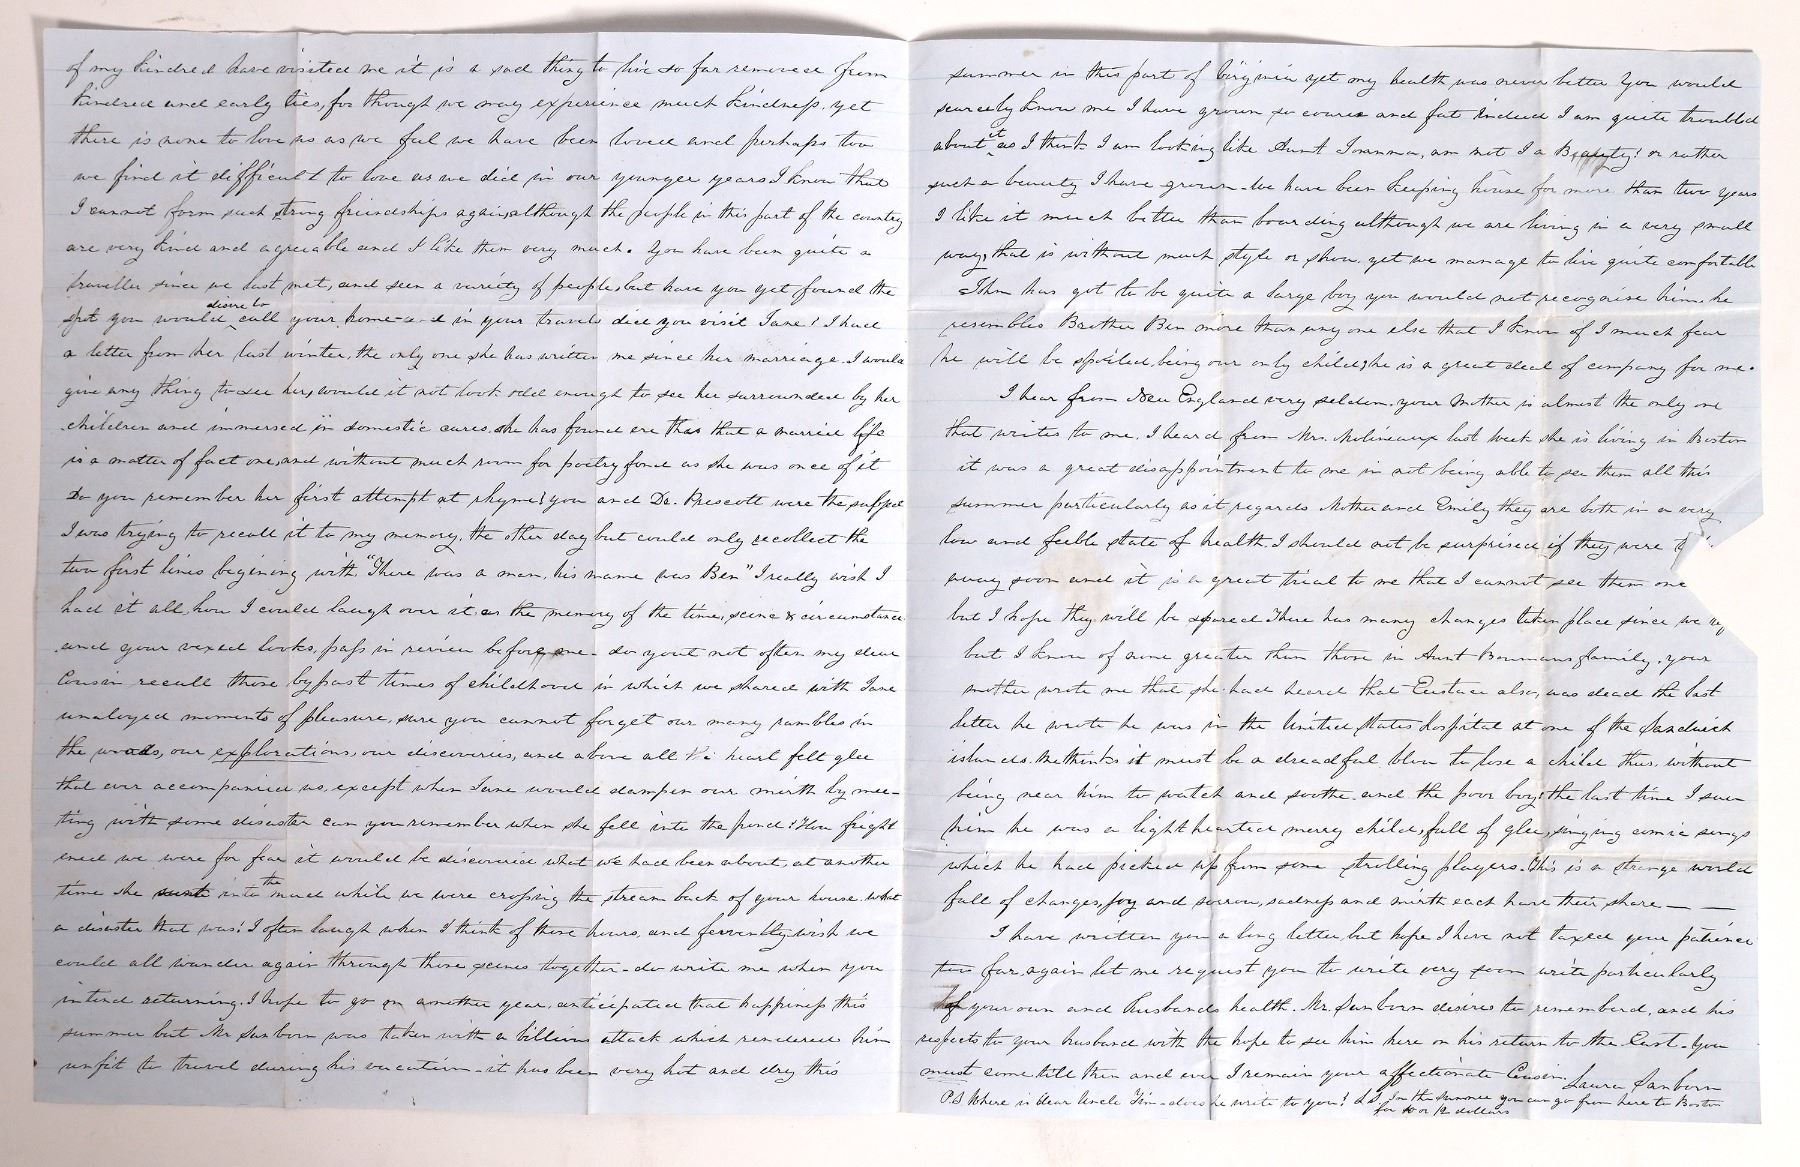 of my kindred have visited me it is a sad thing to live so far removed from
kindred and early ties, for though we may experience much kindness, yet
there is none to love us as we feel we have been loved and perhaps too
we find it difficult to love as we did in our younger years I know that
I cannot form such strong friendships again, although the people in this part of the country
are very kind and agreeable and I like them very much. You have been quite a
traveller since we last met, and seen a variety of people, but have you yet found the
spot you would desire to call your home - and in your travels did you visit Jane? I had
a letter from her last winter, the only one she has written me since her marriage. I would
give any thing to see her, would it not look odd enough to see her surrounded by her
children and immersed in domestic cares. she has found ere this that a married life
is a matter of fact one, and without much room for poetry fond as she was once of it
Do you remember her first attempt at rhyme? you and Dr. Prescott were the subject
I was trying to recall it to my memory, the other day but could only recollect the
two first lines begining with, "There was a man, his name was Ben" I really wish I
had it all, how I could laugh over it as the memory of the time, scene & circumstance
and your vexed looks, pass in review before me - do yout not often my dear
Cousin recall those bypast times of childhood in which we shared with Jane
unaloyed moments of pleasure, sure you cannot forget our many rambles in
the woods, our explorations, our discoveries, and above all the heart felt glee
that ever accompanied us, except when Jane would dampen our mirth by mee-
ting with some disaster can you remember when she fell into the pond? How fright
ened we were for fear it would be discovered what we had been about, at another
time she sunk into the mud while we were crossing the stream back of your house. what
a disaster that was! I often laugh when I think of those hours, and fervently wish we
could all wander again through those scenes together - do write me when you
intend returning, I hope to go on another year, anticipated that happiness this
summer but Mr Sanborn was taken with a billious attack which rendered him
unfit to travel during his vacation - it has been very hot and dry this
summer in this part of Virginia yet my health was never better You would
scarcely know me I have grown so coarse and fat Indeed I am quite troubled
about it as I think I am looking like Aunt, am not I a Beauty! or rather
such a beauty I have grown - We have been keeping house for more than two years
I like it much better than boarding although we are living in a very small
way, that is without much style or show, yet we manage to live quite comfortable
- John has got to be quite a large boy you would not recognise him, he
resembles Brother Ben more than any one else that I know of I much fear
he will be spoiled, being our only child; he is a great deal of company for me.
I hear from New England very seldom. your Mother is almost the only one
that writes to me. I heard from Mrs. Molineaux last week she is living in Boston
it was a great disappointment to me in not being able to see them all this
summer particularly as it regards Mother and Emily they are both in a very
low and feeble state of health. I should not be surprised if they were
away soon and it is a great trial to me that I cannot see them one
but I hope they will be spared There has many changes taken place since we
but I know of none greater than those in Aunt Bowmans family. your
mother wrote me that she had heard that Eustace also, was dead the last
letter he wrote he was in the United States Hospital at one of the Sandwich
islands. Methinks it must be a dreadful blow to lose a child thus, without
being near him to watch and soothe. and the poor boy! the last time I saw
him he was a light hearted merry child, full of glee, singing comic songs
which he had picked up from some strolling players. This is a strange world
full of changes, joy and sorrow, sadness and mirth each have their share. — —
I have written you a long letter, but hope I have not taxed your patience
too far, again let me request you to write very soon write particularly
of your own and Husbands health. Mr. Sanborn desires to remembered, and his
respects to your husband with the hope to see him here on his return to the East - You
must come till then and ever I remain your affectionate Cousin. Laura Sanborn
P.S Where is dear Uncle Tim - does he write to you? L S. In the summer you can go from here to Boston
for 10 or 12 dollars